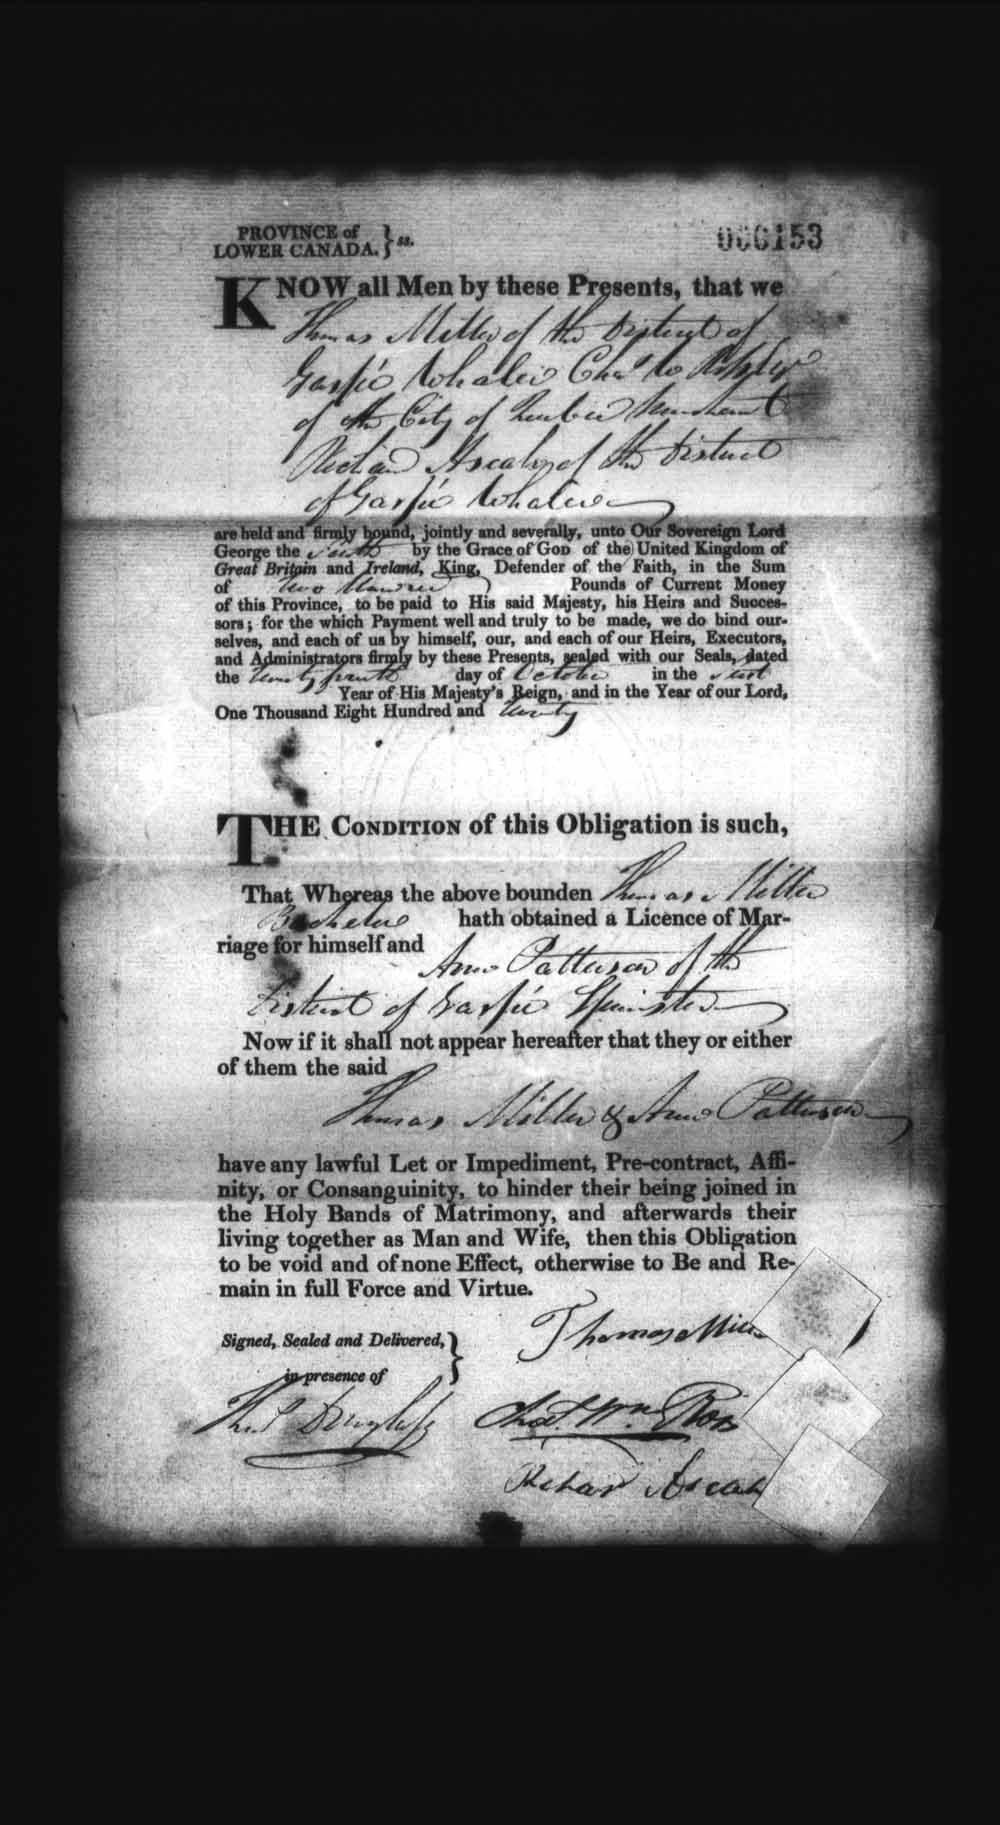 PROVINCE of
LOWER CANADA. } ss.
006153
KNOW all Men by these Presents, that we
Thomas Miller of the District of
Gaspé Whaler Chas Wm Ross
of the City of Quebec Merchant
Richard Ascah of the District
of Gaspé Whaler
are held and firmly bound, jointly and severally, unto Our Sovereign Lord
George the by the Grace of GOD of the United Kingdom of
Great Britain and Ireland, King, Defender of the Faith, in the Sum
of two hundred Pounds of Current Money
of this Province, to be paid to His said Majesty, his Heirs and Succes-
sors; for the which Payment well and truly to be made, we do bind our-
selves, and each of us by himself, our, and each of our Heirs, Executors,
and Administrators firmly by these Presents, sealed with our Seals, dated
the day of October in the first
Year of His Majesty's Reign, and in the Year of our Lord,
One Thousand Eight Hundred and twenty
THE CONDITION of this Obligation is such,
That Whereas the above bounden Thomas Miller
Bachelor hath obtained a Licence of Mar-
riage for himself and
Ann Patterson of the
District of Gaspé Spinster
Now if it shall not appear hereafter that they or either
of them the said
Thomas Miller & Ann Patterson
have any lawful Let or Impediment, Pre-contract, Affi-
nity, or Consanguinity, to hinder their being joined in
the Holy Bands of Matrimony, and afterwards their
living together as Man and Wife, then this Obligation
to be void and of none Effect, otherwise to Be and Re-
main in full Force and Virtue.
Signed, Sealed and Delivered, }
in presence of
Thomas Mill
Chas. Wm Ross
Richard Ascah